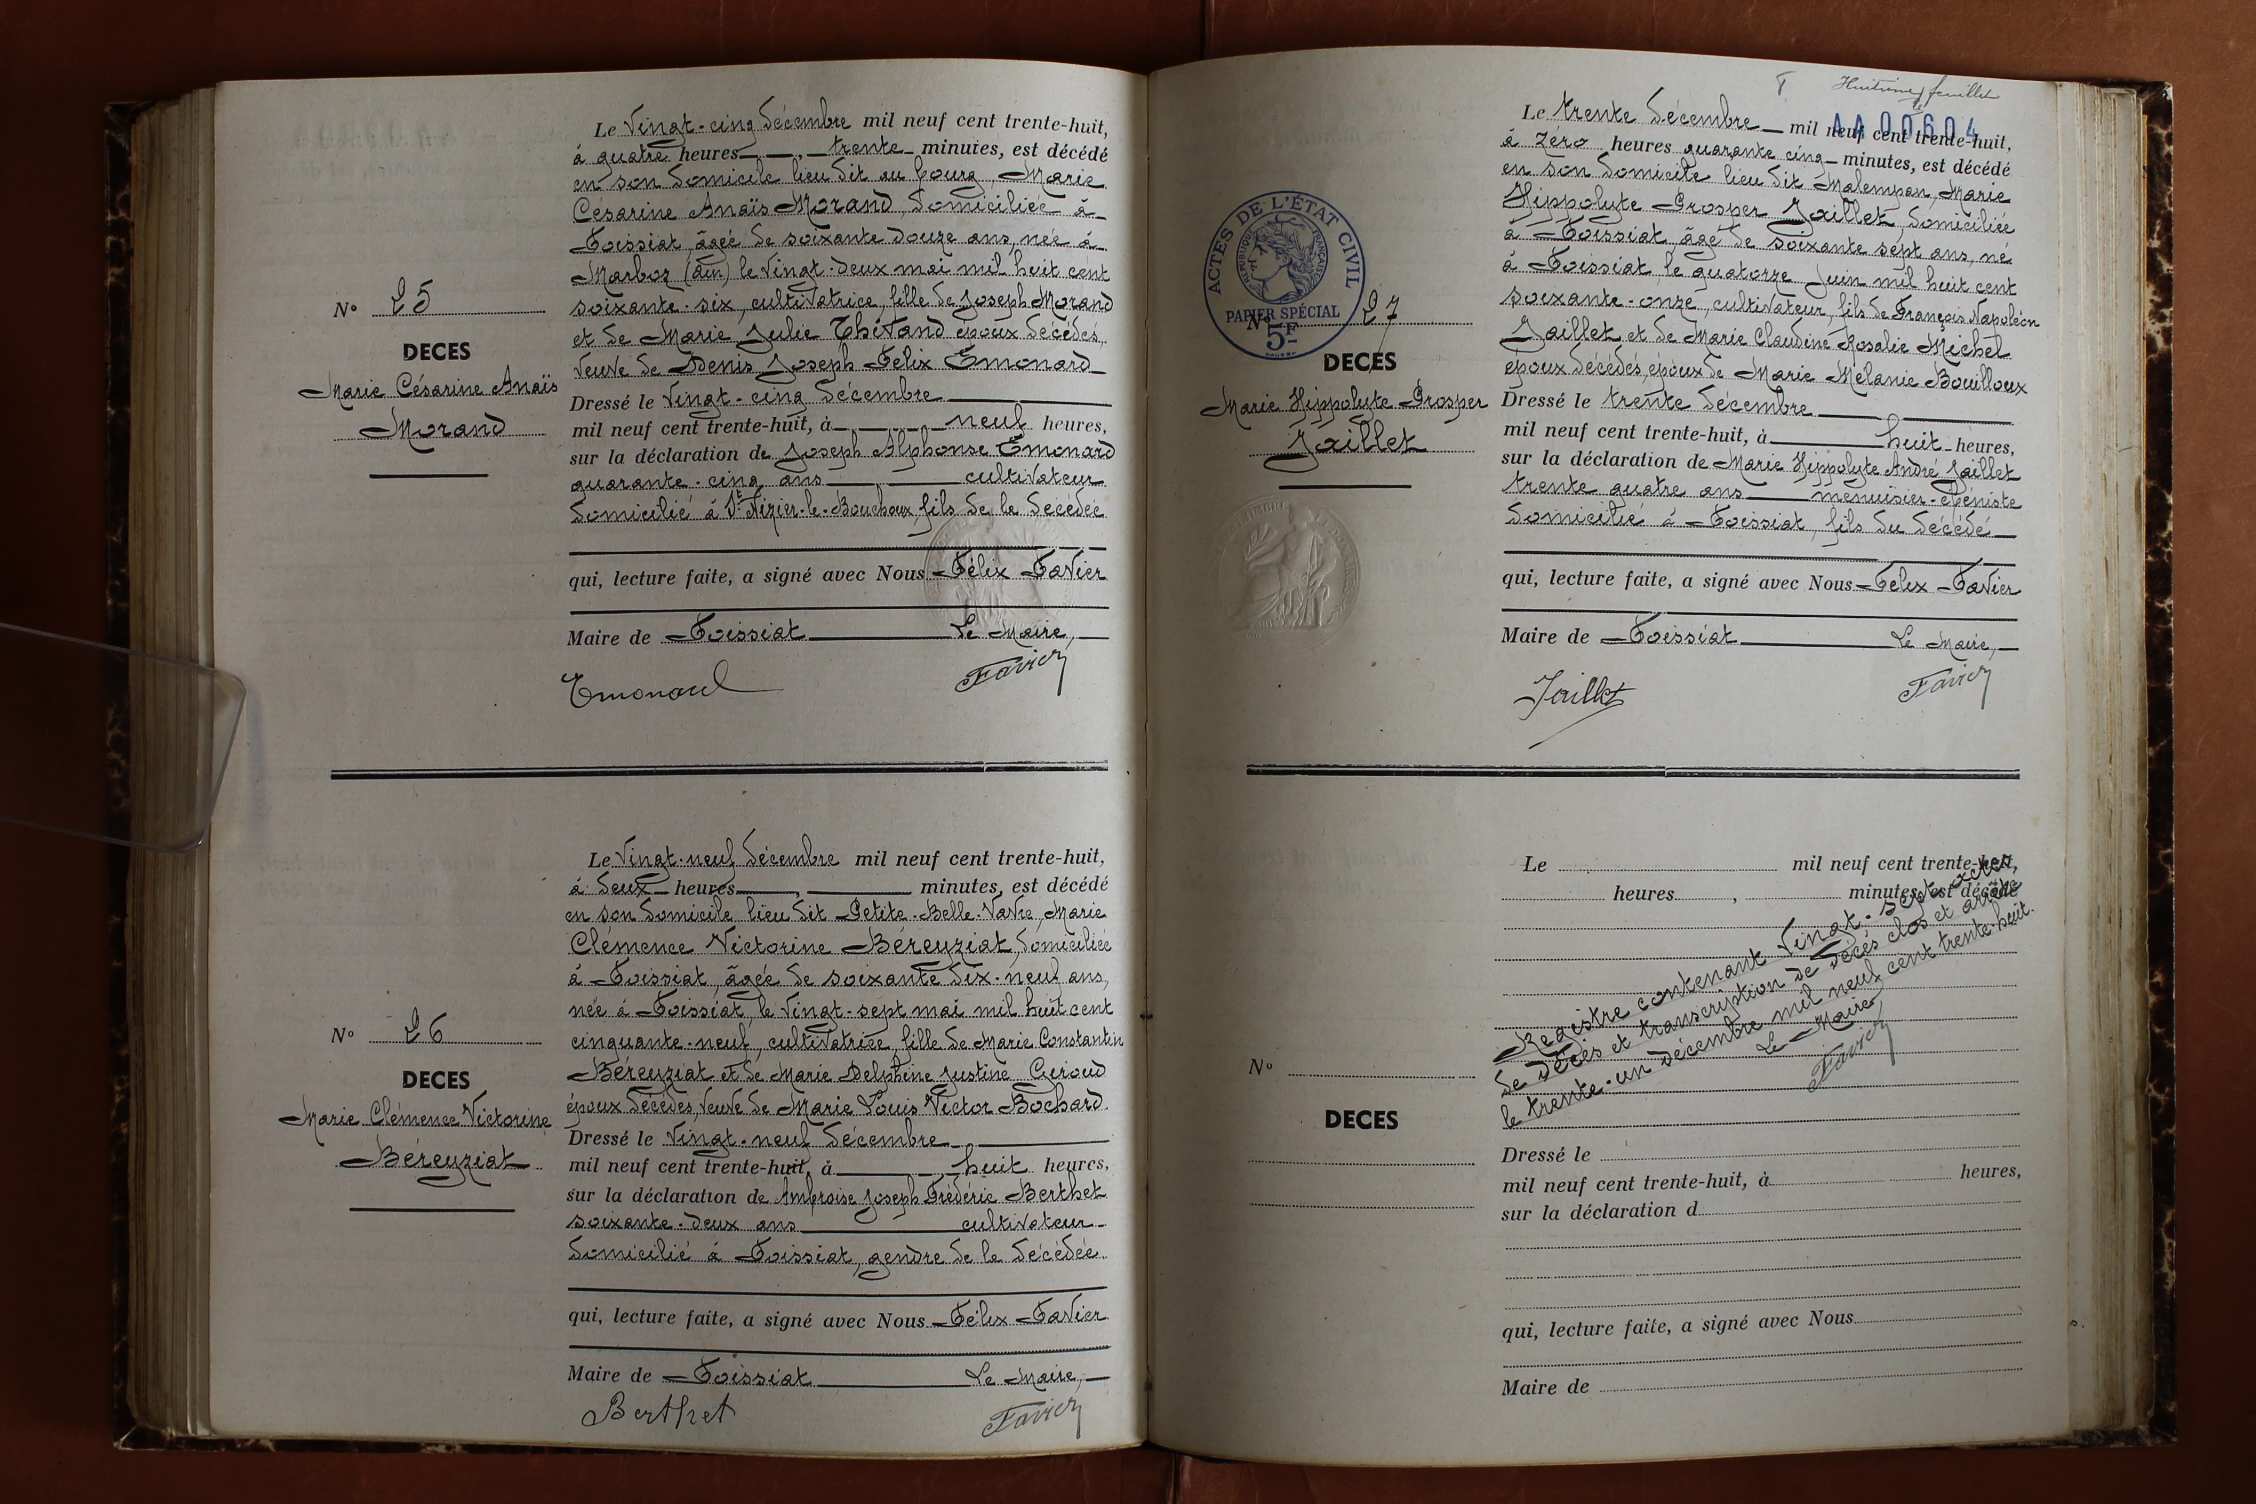 Le Vingt-cinq décembre mil neuf cent trente-huit,
à quatre heures, trente minutes, est décédé
en son domicile lieu dit au bourg, Marie
Césarine Anaïs Morand, domiciliée à
Foissiat, âgée de soixante douze ans, née à
Marboz (Ain) le vingt-deux mai mil huit cent
soixante-six, cultivatrice, fille de Joseph Morand
et de Marie Julie Thévand époux décédés,
veuve de Denis Joseph Félix Emonard
Dressé le vingt-cinq décembre
mil neuf cent trente-huit, à neuf heures,
sur la déclaration de Joseph Alphonse Emonard
quarante-cinq ans cultivateur
domicilié à St Nizier-le-Bouchoux, fils de la décédée
qui, lecture faite, a signé avec Nous Félix Favier
Maire de Foissiat Le Maire,
Emonard Favier
N° 25
DECES
Marie Césarine Anaïs
Morand
Le Vingt-neuf décembre mil neuf cent trente-huit,
à deux heures, minutes, est décédé
en son domicile lieu dit Petite-Belle-Vavre, Marie
Clémence Victorine Béreyziat, domiciliée
à Foissiat, âgée de soixante dix-neuf ans,
née à Foissiat, le vingt-sept mai mil huit cent
cinquante-neuf, cultivatrice, fille de Marie Constantin
Béreyziat et de Marie Delphine Justine Giroud
époux décédés, veuve de Marie Louis Victor Bochard.
Dressé le vingt-neuf décembre
mil neuf cent trente-huit, à huit heures,
sur la déclaration de Ambroise Joseph Frédéric Berthet
soixante-deux ans cultivateur
domicilié à Foissiat, gendre de la décédée
qui, lecture faite, a signé avec Nous Félix Favier
Maire de Foissiat Le Maire,
Berthet Favier
N° 26
DECES
Marie Clémence Victorine
Béreyziat
Huitième feuillet
AA 00604
Le trente décembre mil neuf cent trente-huit,
à zéro heures quarante cinq minutes, est décédé
en son domicile lieu dit Malempan, Marie
Hippolyte Prosper Jaillet, domiciliée
à Foissiat, âgé de soixante sept ans, né
à Foissiat le quatorze juin mil huit cent
soixante-onze, cultivateur, fils de François Napoléon
Jaillet et de Marie Claudine Rosalie Michel
époux décédés, époux de Marie Mélanie Bouilloux
Dressé le trente décembre
mil neuf cent trente-huit, à huit heures,
sur la déclaration de Marie Hippolyte André Jaillet
trente quatre ans menuisier-ébéniste
domicilié à Foissiat, fils du décédé
qui, lecture faite, a signé avec Nous Félix Favier
Maire de Foissiat Le Maire,
Jaillet Favier
ACTES DE L'ÉTAT CIVIL
RÉPUBLIQUE FRANÇAISE
PAPIER SPÉCIAL
5F
N° 27
DECES
Marie Hippolyte Prosper
Jaillet
Le mil neuf cent trente-huit,
heures, minutes, est décédé
Registre contenant vingt-sept actes
de décès et transcription de décès clos et arrêté
le trente-un décembre mil neuf cent trente-huit.
Le Maire,
Favier
N°
DECES
Dressé le
mil neuf cent trente-huit, à heures,
sur la déclaration d
qui, lecture faite, a signé avec Nous
Maire de